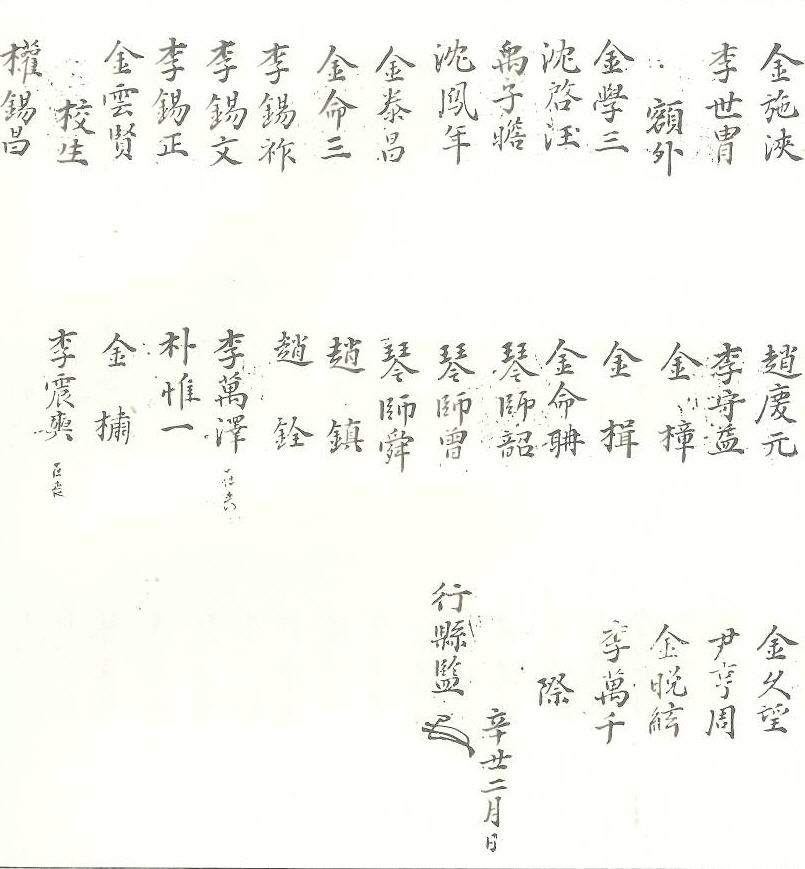 金施浹
李世胄
額外
金學三
沈啓汪
禹子瞻
沈鳳年
金泰昌
金命三
李錫祚
李錫文
李錫正
金雲賢
校生
權錫昌
趙慶元
李守益
金樟
金楫
金命聃
琴師韶
琴師曾
琴師舜
趙鎮
趙銓
李萬澤
朴惟一
金橚
李震奭
金久望
尹亨周
金晩鉉
李萬千
際
辛丑二月日
行縣監